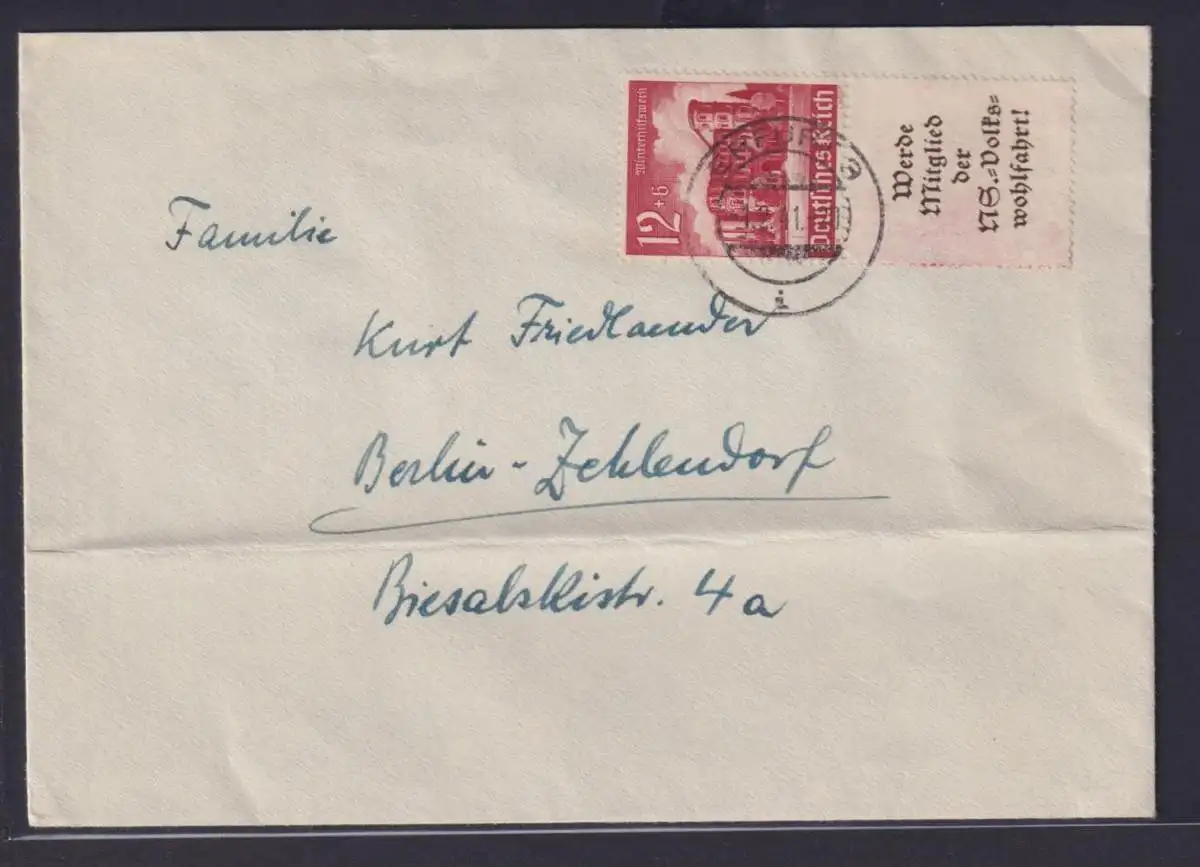 Winterhilfswerk
12+6
Deutsches Reich
Werde
Mitglied
der
NS.=Volks=
wohlfahrt!
Familie
Kurt Friedlaender
Berlin-Zehlendorf
Biesalskistr. 4a